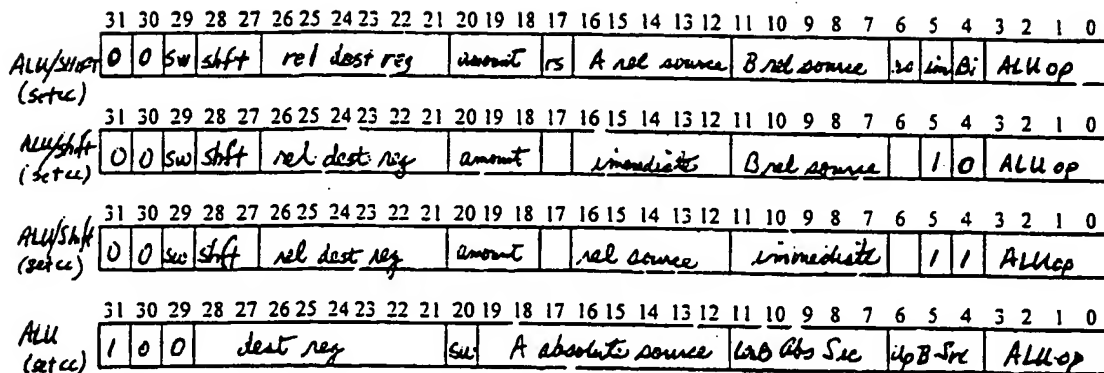 31 30 29 28 27 26 25 24 23 22 21 20 19 18 17 16 15 14 13 12 11 10 9 8 7 6 5 4 3 2 1 0
ALU/SHIFT 0 0 sw shft rel dest reg amount rs A rel source B rel source im Bi ALU op
(setcc)
31 30 29 28 27 26 25 24 23 22 21 20 19 18 17 16 15 14 13 12 11 10 9 8 7 6 5 4 3 2 1 0
ALU/shft 0 0 sw shft rel dest reg amount immediate B rel source 1 0 ALU op
(setcc)
31 30 29 28 27 26 25 24 23 22 21 20 19 18 17 16 15 14 13 12 11 10 9 8 7 6 5 4 3 2 1 0
ALU/Shft 0 0 sw shft rel dest reg amount rel source immediate 1 1 ALUop
(setcc)
31 30 29 28 27 26 25 24 23 22 21 20 19 18 17 16 15 14 13 12 11 10 9 8 7 6 5 4 3 2 1 0
ALU 1 0 0 dest reg sw A absolute source B Abs Src B Src ALU op
(setcc)